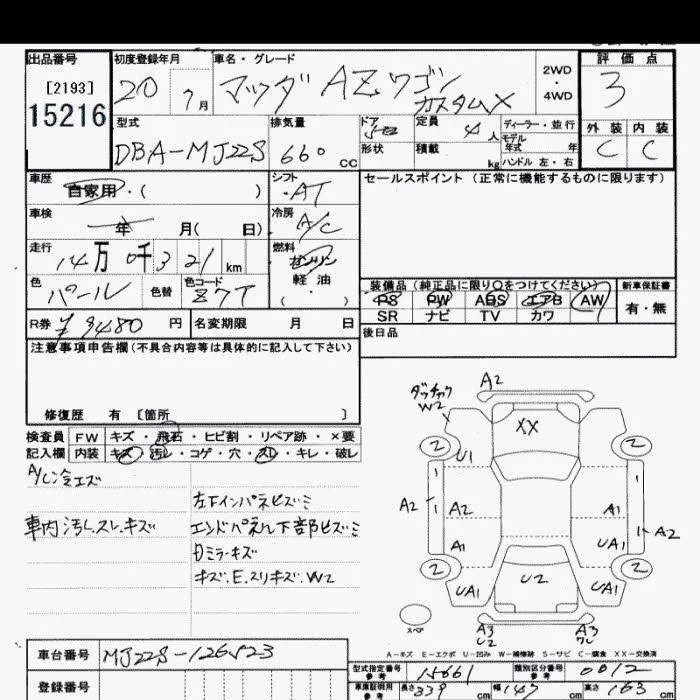 出品番号 初度登録年月 車名・グレード 評価点
[2193]
15216
20 7月 マツダ AZワゴン カスタムX
2WD
4WD
3
型式 排気量 ドア 定員 ディーラー・並行 外装 内装
モデル年式 年
DBA-MJ22S 660cc 5 4人 C C
形状 積載 kg ハンドル 左・右
車歴 シフト セールスポイント (正常に機能するものに限ります)
自家用・( ) AT
車検 冷房
年 月( 日) A/C
走行 燃料
14万0千321km ガソリン
軽油
( )
色 色替 色コード
パール Z7T
装備品 (純正品に限り○をつけてください) 新車保証書
PS PW ABS エアB AW 有・無
SR ナビ TV カワ
R券 ¥9480円 名変期限 月 日 後日品
注意事項申告欄(不具合内容等は具体的に記入して下さい)
修復歴 有 [箇所 ]
検査員 FW キズ・飛石・ヒビ割・リペア跡・×要
記入欄 内装 キズ・汚レ・コゲ・穴・スレ・キレ・破レ
A/C冷エズ
左下インパネヒズミ
車内汚レスレ・キズ エンドパネル下部ヒズミ
ミラーキズ
キズ.E.スリキズ.W2
W2
A2
XX
2 2
U1
A2 A2 A1 A2
A1 UA1
2 2
UA1 U2 UA1
スペア
A3
U2
A3
ワレ
A-キズ E-エクボ U-凹み W-補修跡 S-サビ C-腐食 XX-交換済
車台番号 MJ22S-126523
登録番号
型式指定番号 参考 15661 類別区分番号 参考 0012
車庫証明用 参考 長さ 339cm 幅 147cm 高さ 163cm